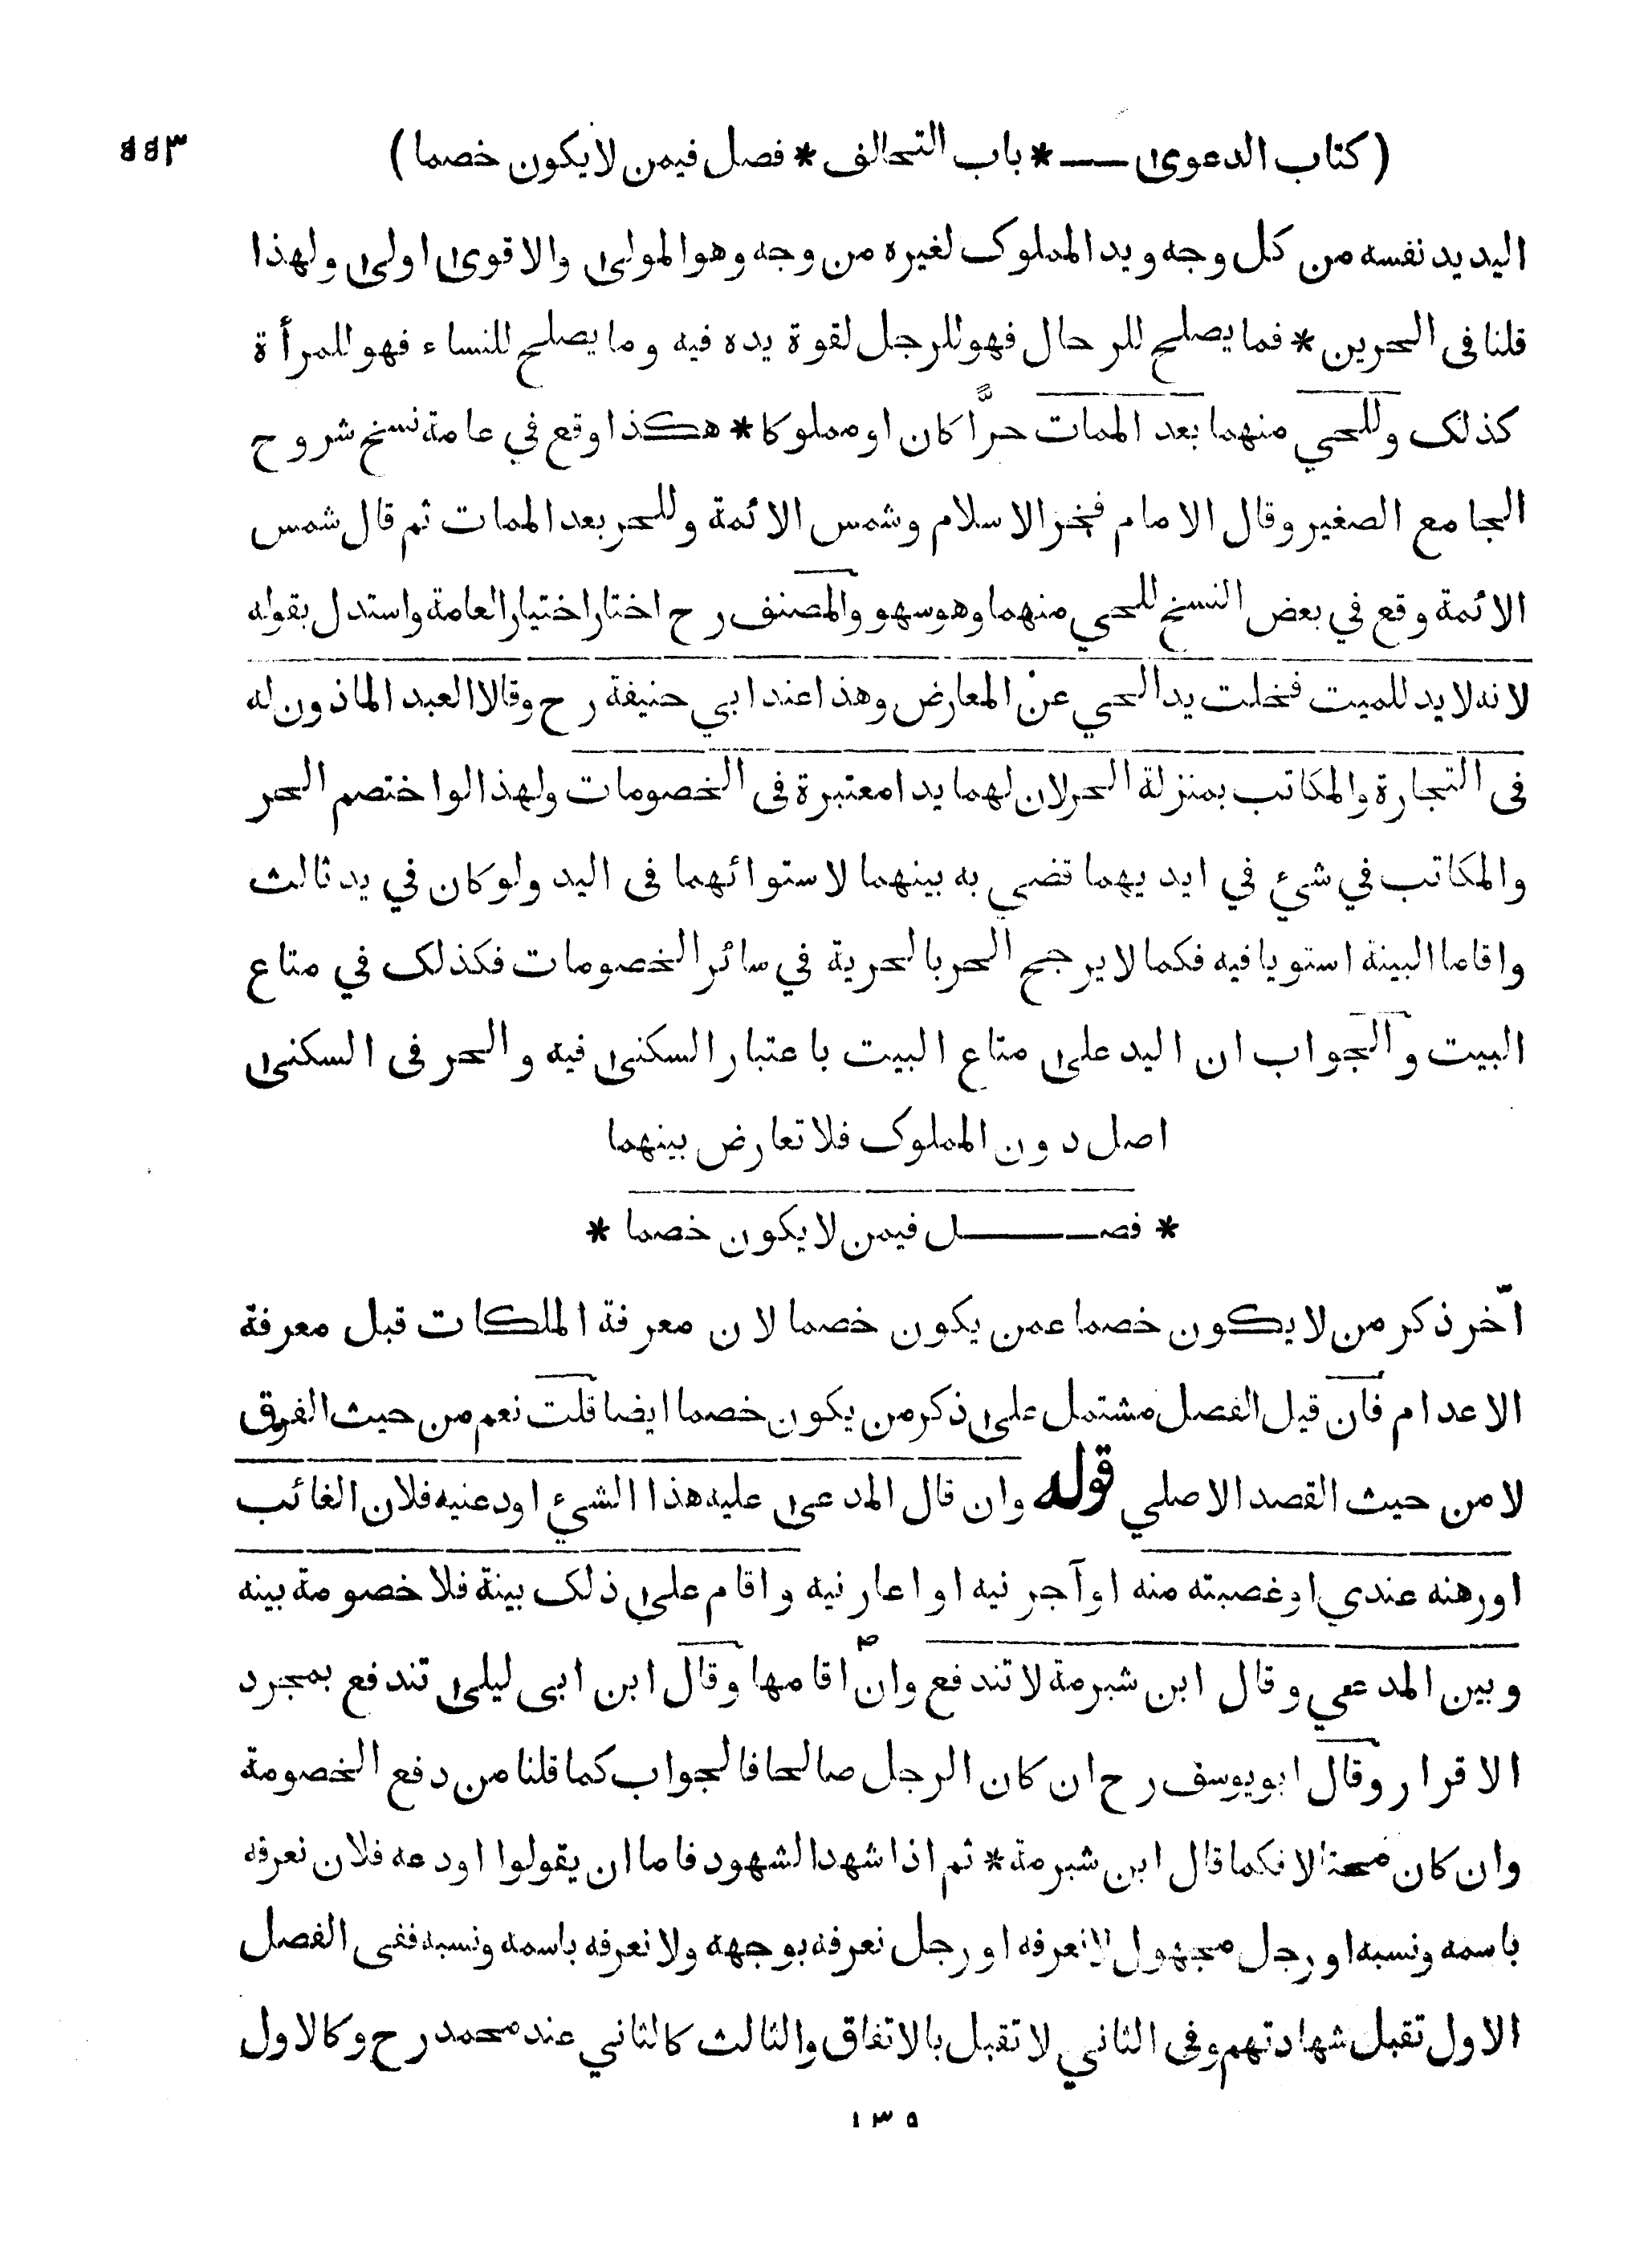 ( كتاب الدعوى — * باب التحالف * فصل فيمن لا يكون خصما )
اليد يد نفسه من كل وجه ويد المملوك لغيره من وجه وهو المولى والاقوى اولى ولهذا
قلنا فى الحرين * فما يصلح للرجال فهو للرجل لقوة يده فيه وما يصلح للنساء فهو للمرأة
كذلك وللحي منهما بعد الممات حرًّا كان او مملوكا * هكذا وقع في عامة نسخ شروح
الجامع الصغير وقال الامام فخر الاسلام وشمس الائمة وللحر بعد الممات ثم قال شمس
الائمة وقع في بعض النسخ للحي منهما وهو سهو والمصنف رح اختار اختيار العامة واستدل بقوله
لانه لا يد للميت فخلت يد الحي عن المعارض وهذا عند ابي حنيفة رح وقالا العبد الماذون له
فى التجارة والمكاتب بمنزلة الحر لان لهما يدا معتبرة فى الخصومات ولهذا لو اختصم الحر
والمكاتب في شيء في ايديهما قضي به بينهما لاستوائهما فى اليد ولو كان في يد ثالث
واقاما البينة استويا فيه فكما لا يرجح الحر بالحرية في سائر الخصومات فكذلك في متاع
البيت والجواب ان اليد على متاع البيت باعتبار السكنى فيه والحر فى السكنى
اصل دون المملوك فلا تعارض بينهما
* فصل فيمن لا يكون خصما *
اخّر ذكر من لا يكون خصما عمن يكون خصما لان معرفة الملكات قبل معرفة
الاعدام فان قيل الفصل مشتمل على ذكر من يكون خصما ايضا قلت نعم من حيث الفرق
لا من حيث القصد الاصلي قوله وان قال المدعى عليه هذا الشيء اودعنيه فلان الغائب
اورهنه عندي او غصبته منه او آجرنيه او اعارنيه واقام على ذلك بينة فلا خصومة بينه
وبين المدعي وقال ابن شبرمة لا تندفع وان اقامها وقال ابن ابى ليلى تندفع بمجرد
الاقرار وقال ابو يوسف رح ان كان الرجل صالحا فالجواب كما قلنا من دفع الخصومة
وان كان محتالا فكما قال ابن شبرمة * ثم اذا شهد الشهود فاما ان يقولوا اودعه فلان نعرفه
باسمه ونسبه او رجل مجهول لا نعرفه او رجل نعرفه بوجهه ولا نعرفه باسمه ونسبه ففى الفصل
الاول تقبل شهادتهم وفى الثاني لا تقبل بالاتفاق والثالث كالثاني عند محمد رح وكالاول
١٣٥